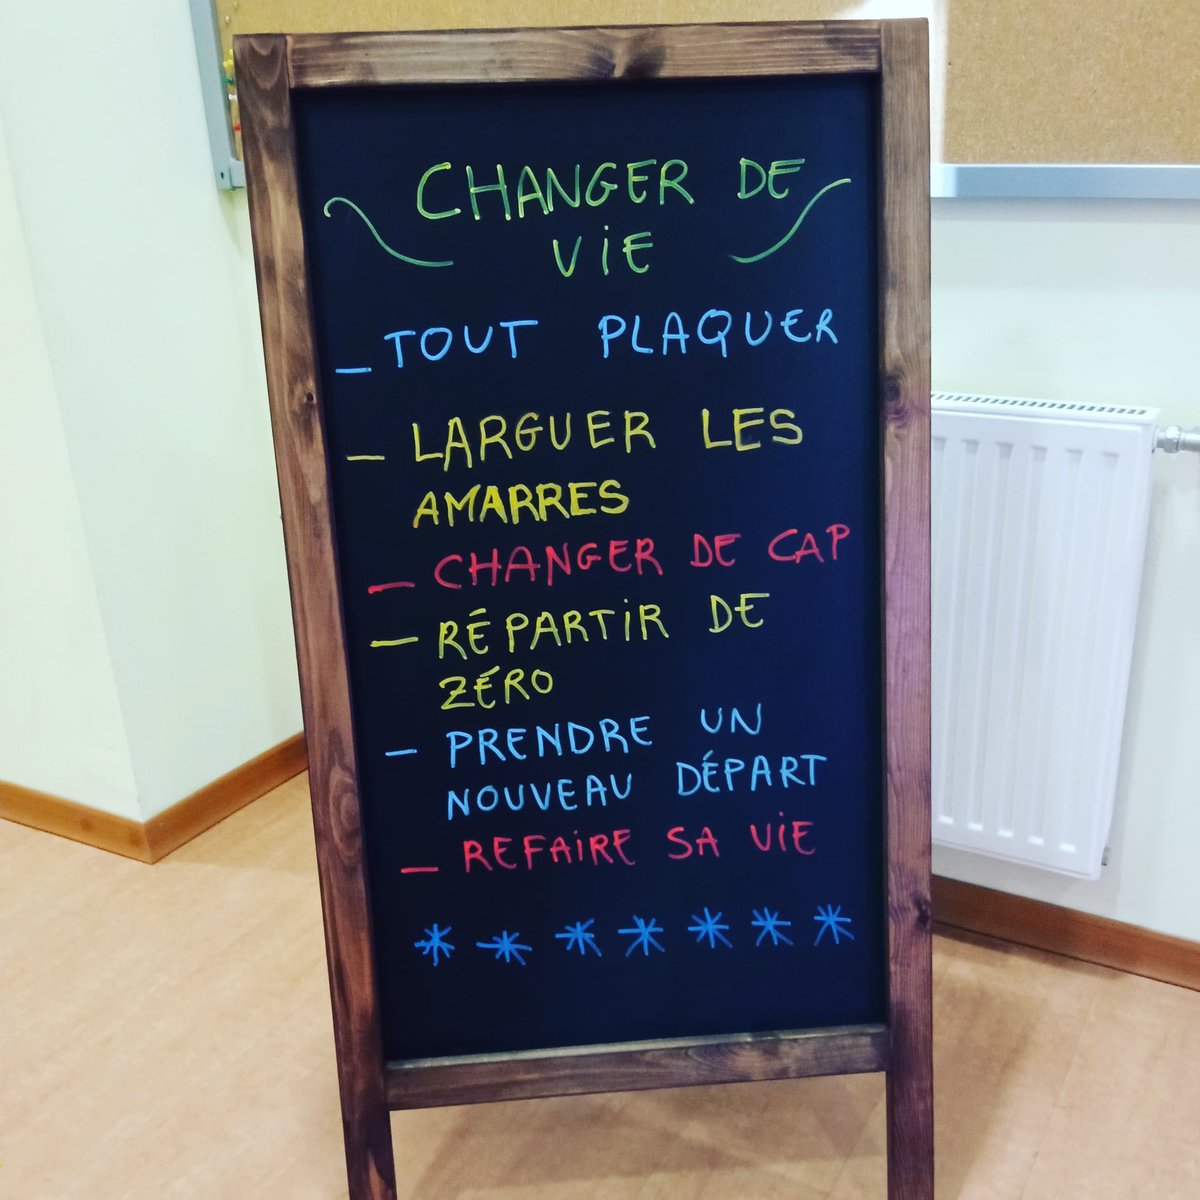 CHANGER DE
ViE
_ TOUT PLAQUER
- LARGUER LES
AMARRES
- CHANGER DE CAP
- RÉPARTiR DE
ZÉRO
- PRENDRE UN
NOUVEAU DÉPART
- REFAiRE SA ViE